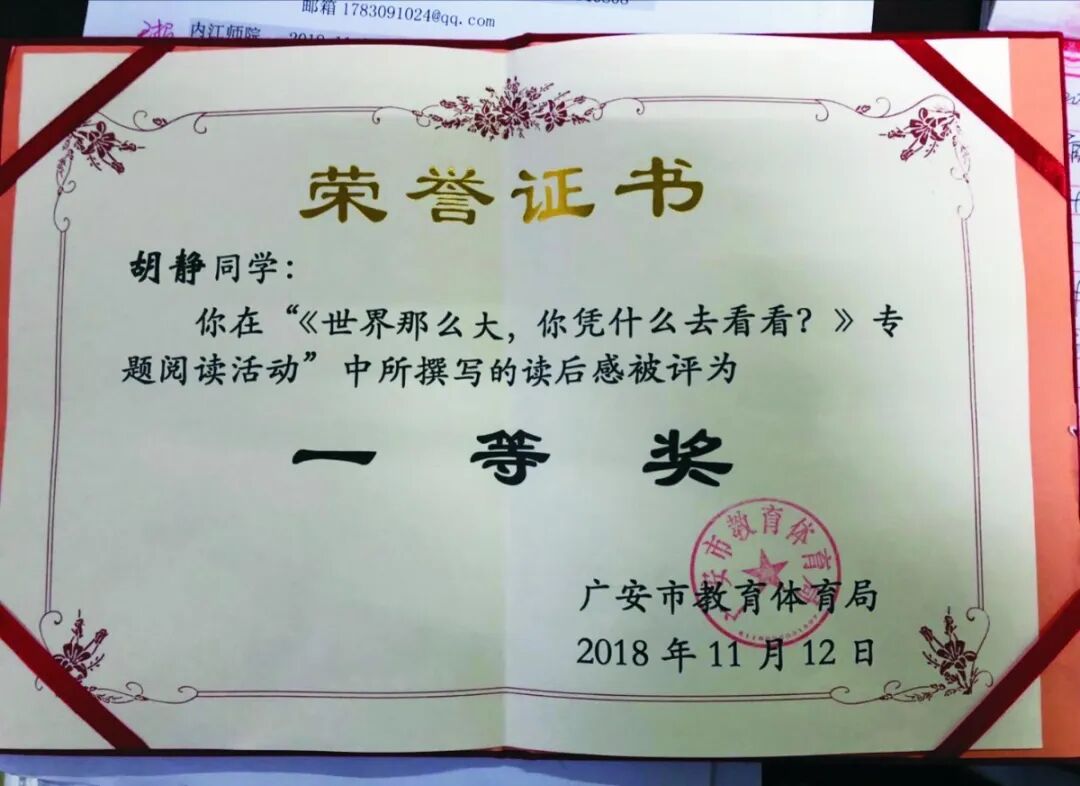 邮箱 1783091024@qq.com
内江师院
荣誉证书
胡静同学：
你在“《世界那么大，你凭什么去看看？》专
题阅读活动”中所撰写的读后感被评为
一等奖
广安市教育体育局
广安市教育体育局
2018年11月12日